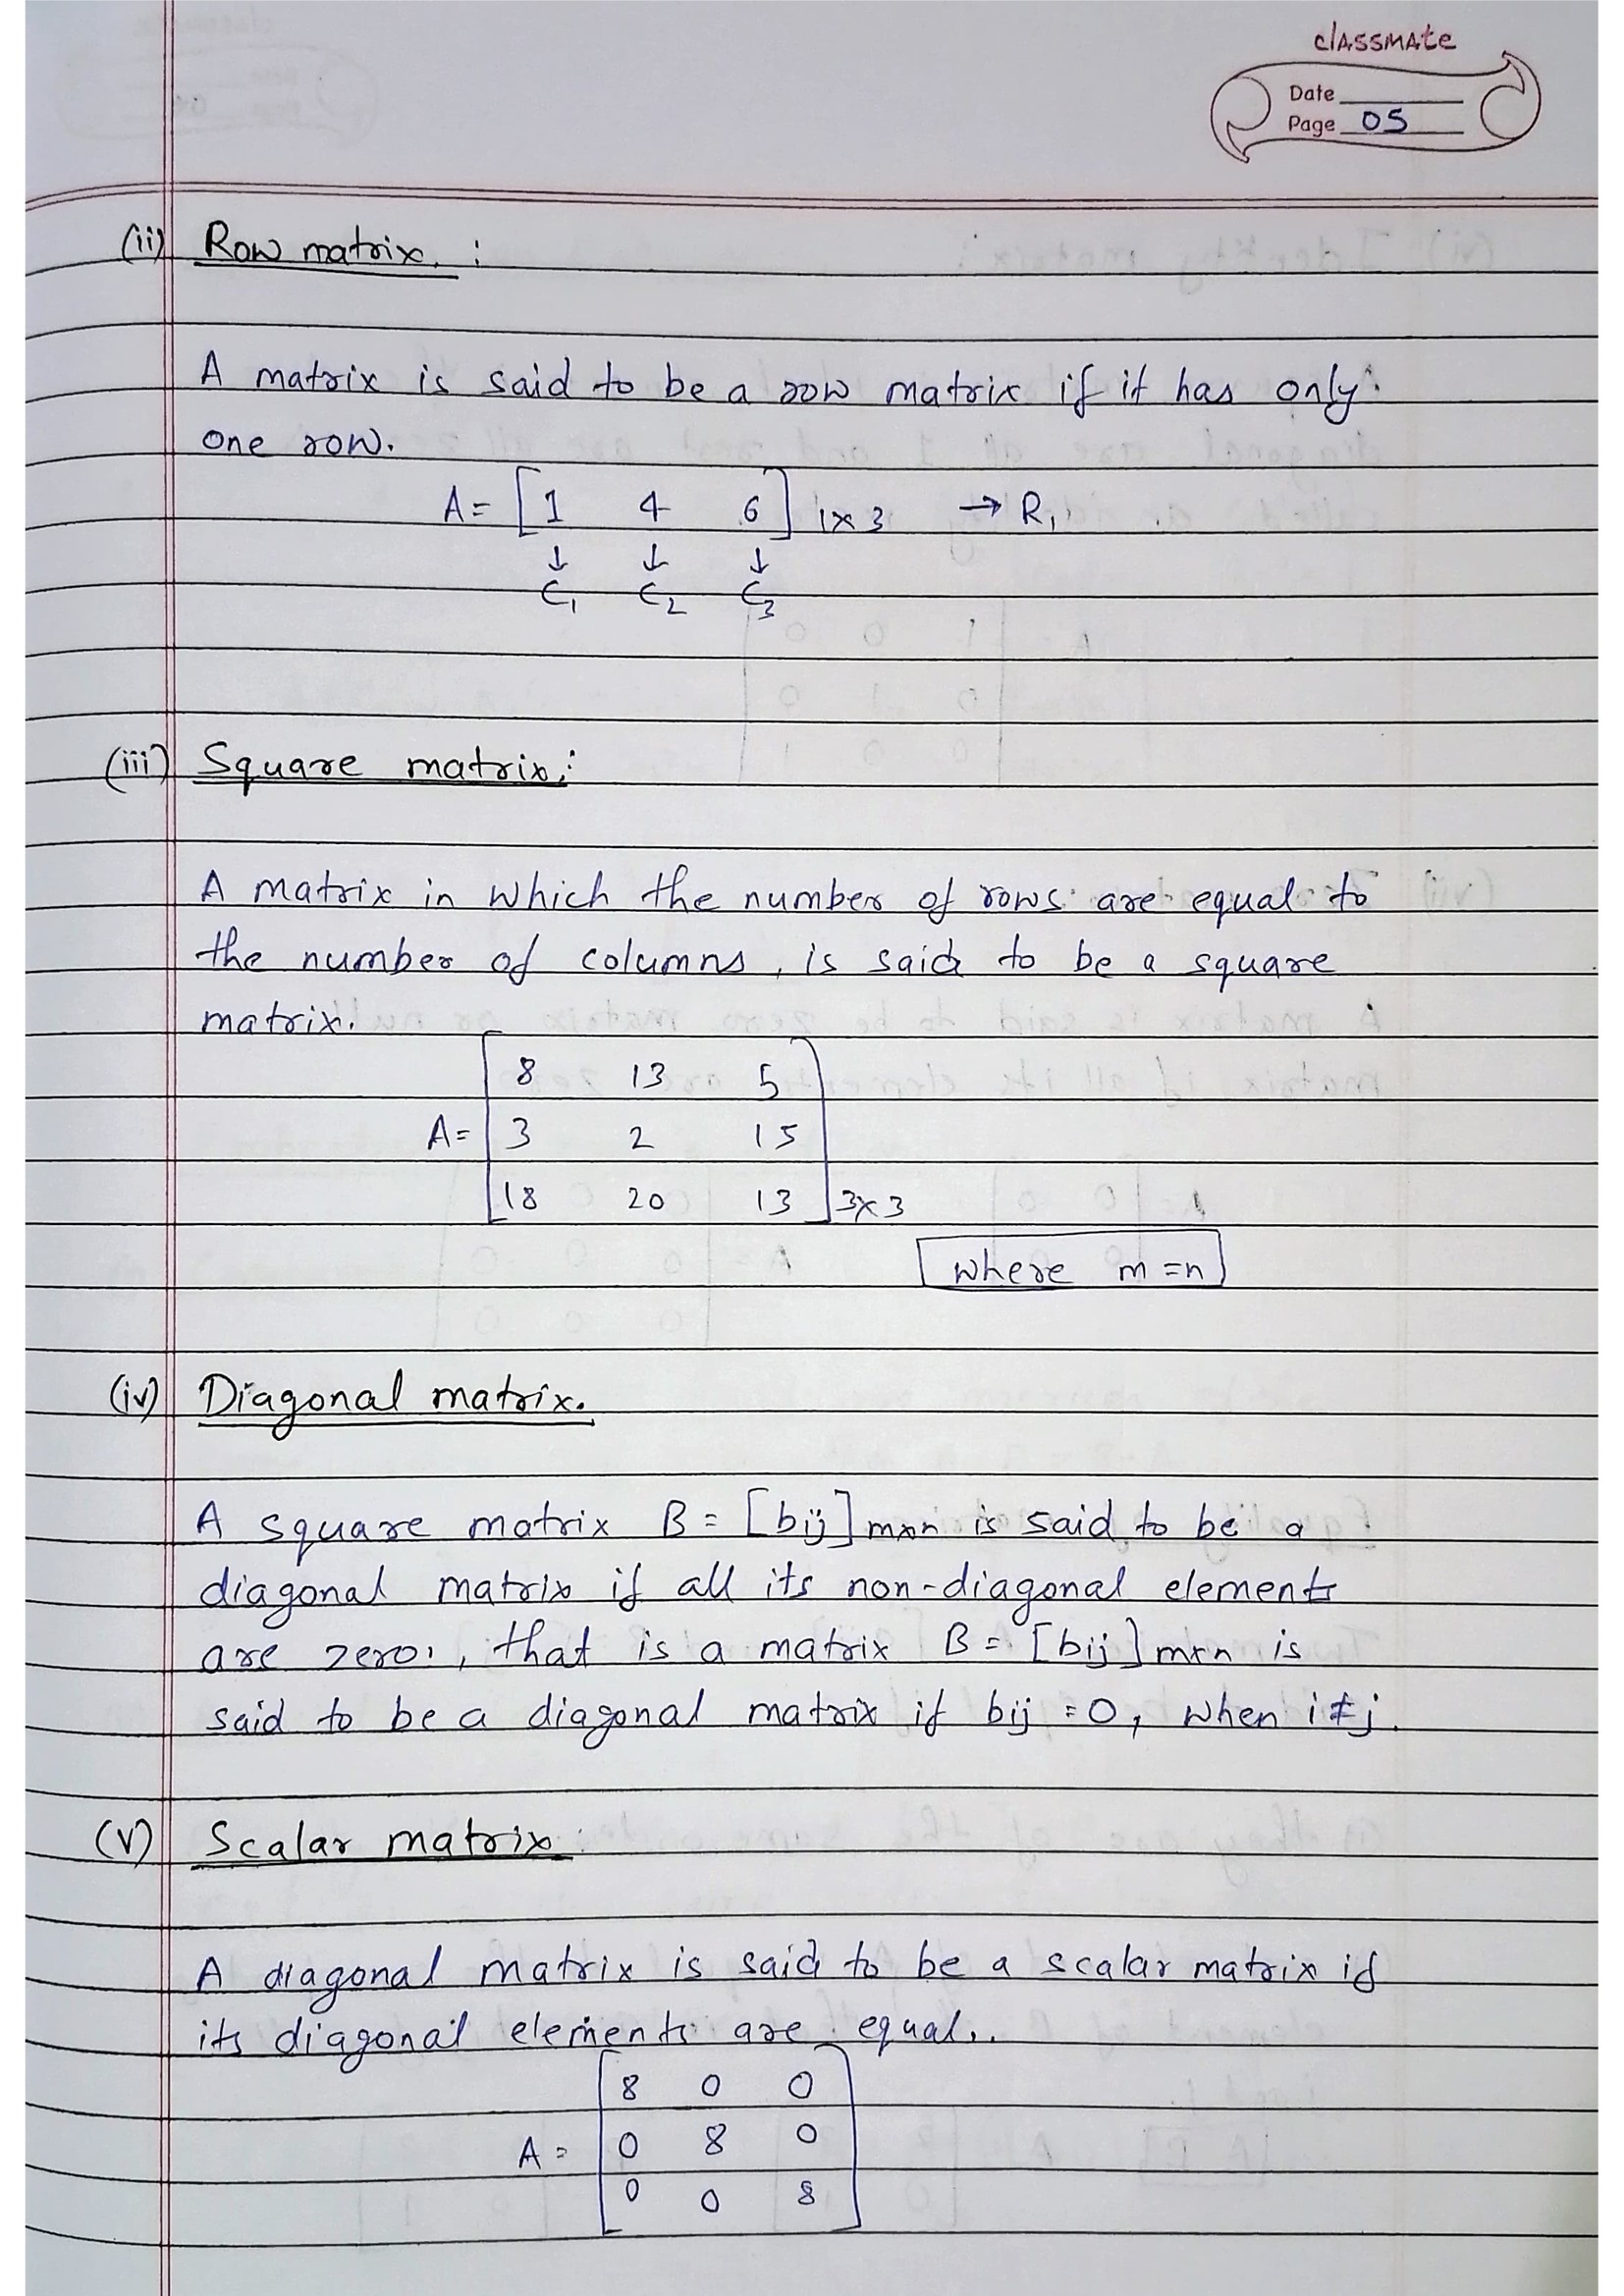 classmate
Date
Page 05
(ii) Row matrix. :
A matrix is said to be a row matrix if it has only
one row.
A = [ 1 4 6 ] 1x3 → R1
↓ ↓ ↓
C1 C2 C3
(iii) Square matrix:
A matrix in which the number of rows are equal to
the number of columns, is said to be a square
matrix.
8 13 5
A = 3 2 15
18 20 13 3x3
where m = n
(iv) Diagonal matrix.
A square matrix B = [bij] mxn is said to be a
diagonal matrix if all its non-diagonal elements
are zero, that is a matrix B = [bij] mxn is
said to be a diagonal matrix if bij = 0, when i ≠ j.
(v) Scalar matrix:
A diagonal matrix is said to be a scalar matrix if
its diagonal elements are equal.
8 0 0
A = 0 8 0
0 0 8